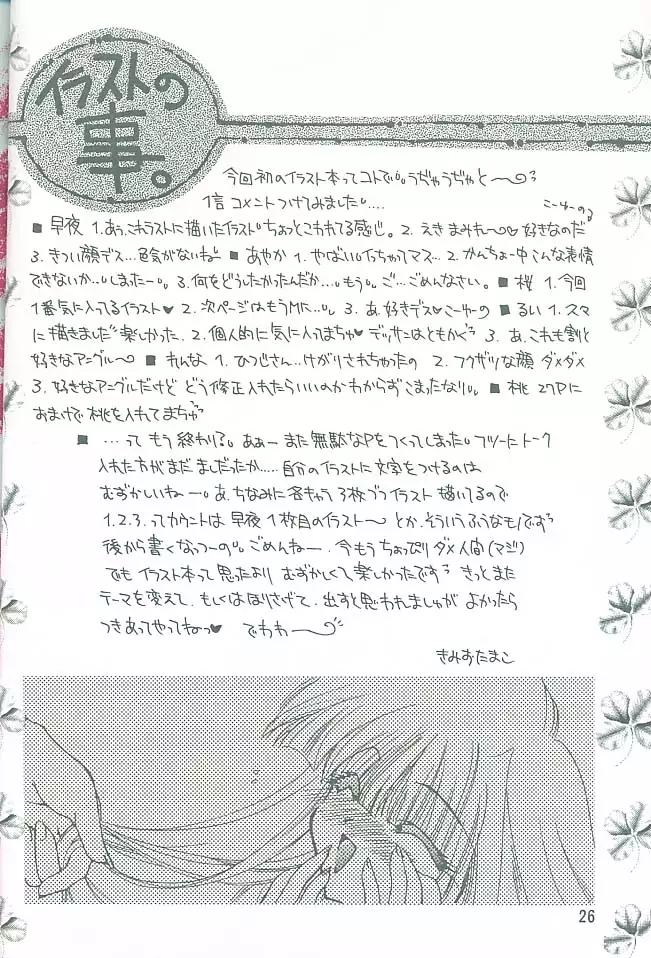 イラストの
事。
今回初のイラスト本ってコトで。うだゃうだゃと〜
1言コメントつけてみました。…… こーゆーのる
■早夜 1.あぅ、これラストに描いたイラスト。ちょっとこわれてる感じ。2.えき まみれ〜♡好きなのだ
3.きつい顔デス…色舎がないねー ■あやか 1.やばい。イっちゃってマス… 2.かんちょー中こんな表情
できないか…。しまたー。3.何をどうしたかったんだか…。もう。ご…ごめんなさい。■桜 1.今回
1番気に入ってるイラスト♥ 2.次ページはもうMに…。3.あ、好きデス♥こーゆーの ■るい 1.スマ
に描きました 楽しかった. 2.個人的に気に入ってまちゅ♥デッサンはともかく 3.あ、これも割と
好きなアングル〜 ■れんな 1.ひつじさん…けがりされちゃったの 2.フクザツな顔 ダメダメ
3.好きなアングルだけど どう修正入れたらいいのかわからずこまったなり。■桃 27Pに
おまけで桃を入れてまちゅ
■…って もう終わり?。あぁー また無駄なPをつくってしまった。フツーにトーク
入れた方がまだ ましだったか……自分のイラストに文字をつけるのは
むずかしいねー。あ、ちなみに各きゃら3枚づつイラスト 描いてるので
1.2.3.ってカウントは 早夜1枚目のイラスト〜 とか、そういうふうなもノです
後から書くなっつーの。ごめんねー. 今もうちょっぴりダメ人間(マジ)
でも イラスト本って 思ったより むずかしくて楽しかったです きっとまた
テーマを変えて、もしくはほりさげて、出すと思われましゅが よかったら
つきあってやってねっ♥ でわわ〜
きみおたまこ
26